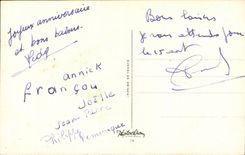 Joyeux anniversaire
et bons baisers.
annick
Françou
Joëlle
Jean Pierre
Philippe Dominique
Bons baisers
Je vous attends pour
le 15 août